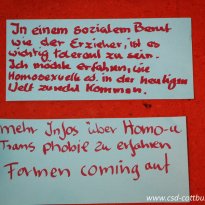 In einem sozialem Beruf
wie der Erzieher, ist es
wichtig tolerant zu sein.
Ich möchte erfahren, wie
Homosexuelle in der heutigen
Welt zurecht kommen.
mehr Infos über Homo-u
Transphobie zu erfahren
Formen coming aut
www.csd-cottbu